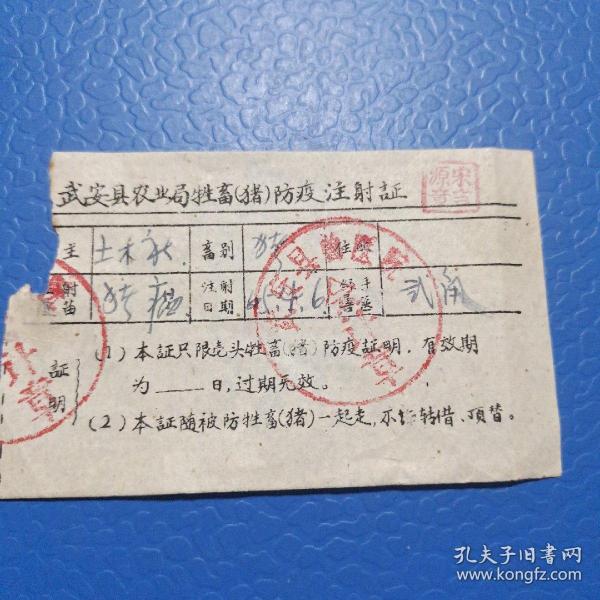 武安县农业局牲畜(猪)防疫注射証
宋言源章
主 土木 畜别 猪 住
射苗 猪瘟 注射日期 手 弍角
武安县兽医院
証明
(1)本証只限壳头牲畜(猪)防疫証明，有效期
为____日，过期无效。
(2)本証随被防牲畜(猪)一起走，不 转借、顶替。
章
孔夫子旧书网
www.kongfz.com